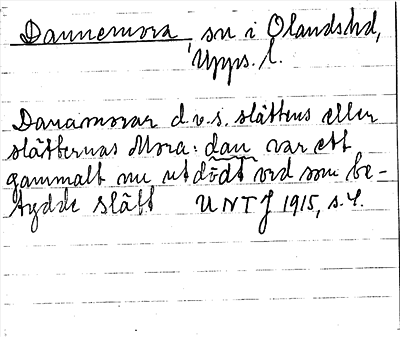 Dannemora, sn i Olandshd,
Upps. l.
Danamorar d.v.s. slättens eller
slätternas Mora: dan var ett
gammalt nu utdödt ord som be-
tydde slätt UNT J 1915, s. 4.